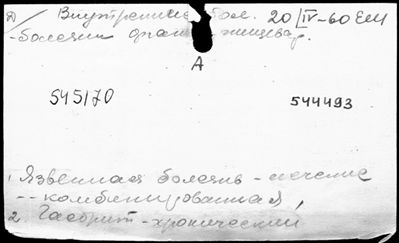 А) Внутренние бол. 20/IV-60 ЕМ
-болезни орган. пищевар.
А
545170 544493
1. Язвенная болезнь - лечение
-- комбинированная,
2. Гастрит - хронический